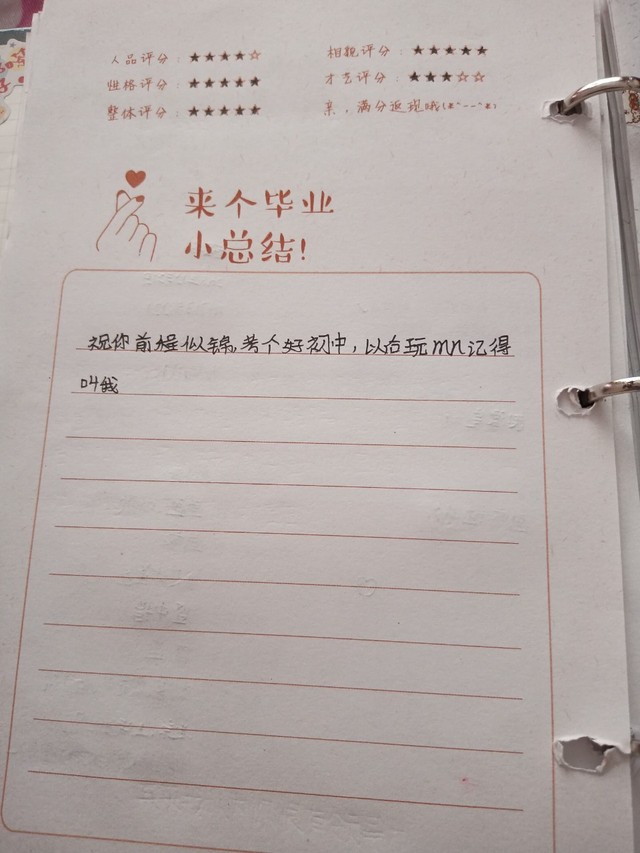 人品评分：★★★★☆
相貌评分：★★★★★
性格评分：★★★★★
才艺评分：★★★☆☆
整体评分：★★★★★
亲，满分返现哦(*^--^*)
来个毕业
小总结!
祝你前程似锦,考个好初中，以后玩mn记得
叫我